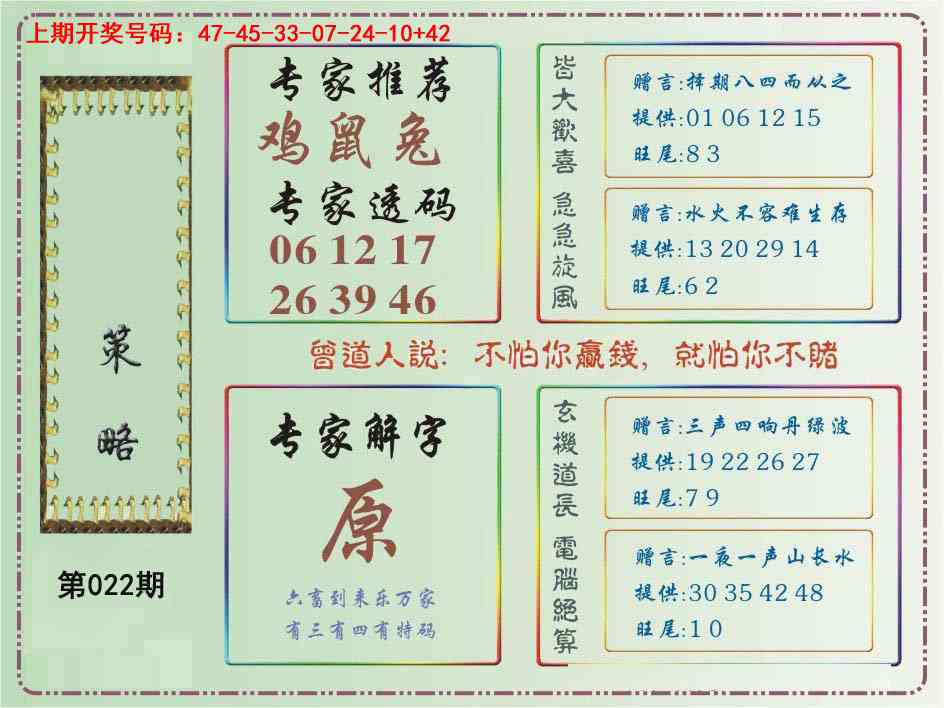 上期开奖号码：47-45-33-07-24-10+42
策略
第022期
专家推荐
鸡鼠兔
专家透码
06 12 17
26 39 46
皆大歡喜
赠言:择期八四而从之
提供:01 06 12 15
旺尾:8 3
急急旋風
赠言:水火不容难生存
提供:13 20 29 14
旺尾:6 2
曾道人説: 不怕你贏錢, 就怕你不賭
专家解字
原
六畜到来乐万家
有三有四有特码
玄機道長
赠言:三声四响丹绿波
提供:19 22 26 27
旺尾:7 9
電腦絕算
赠言:一夜一声山长水
提供:30 35 42 48
旺尾:1 0